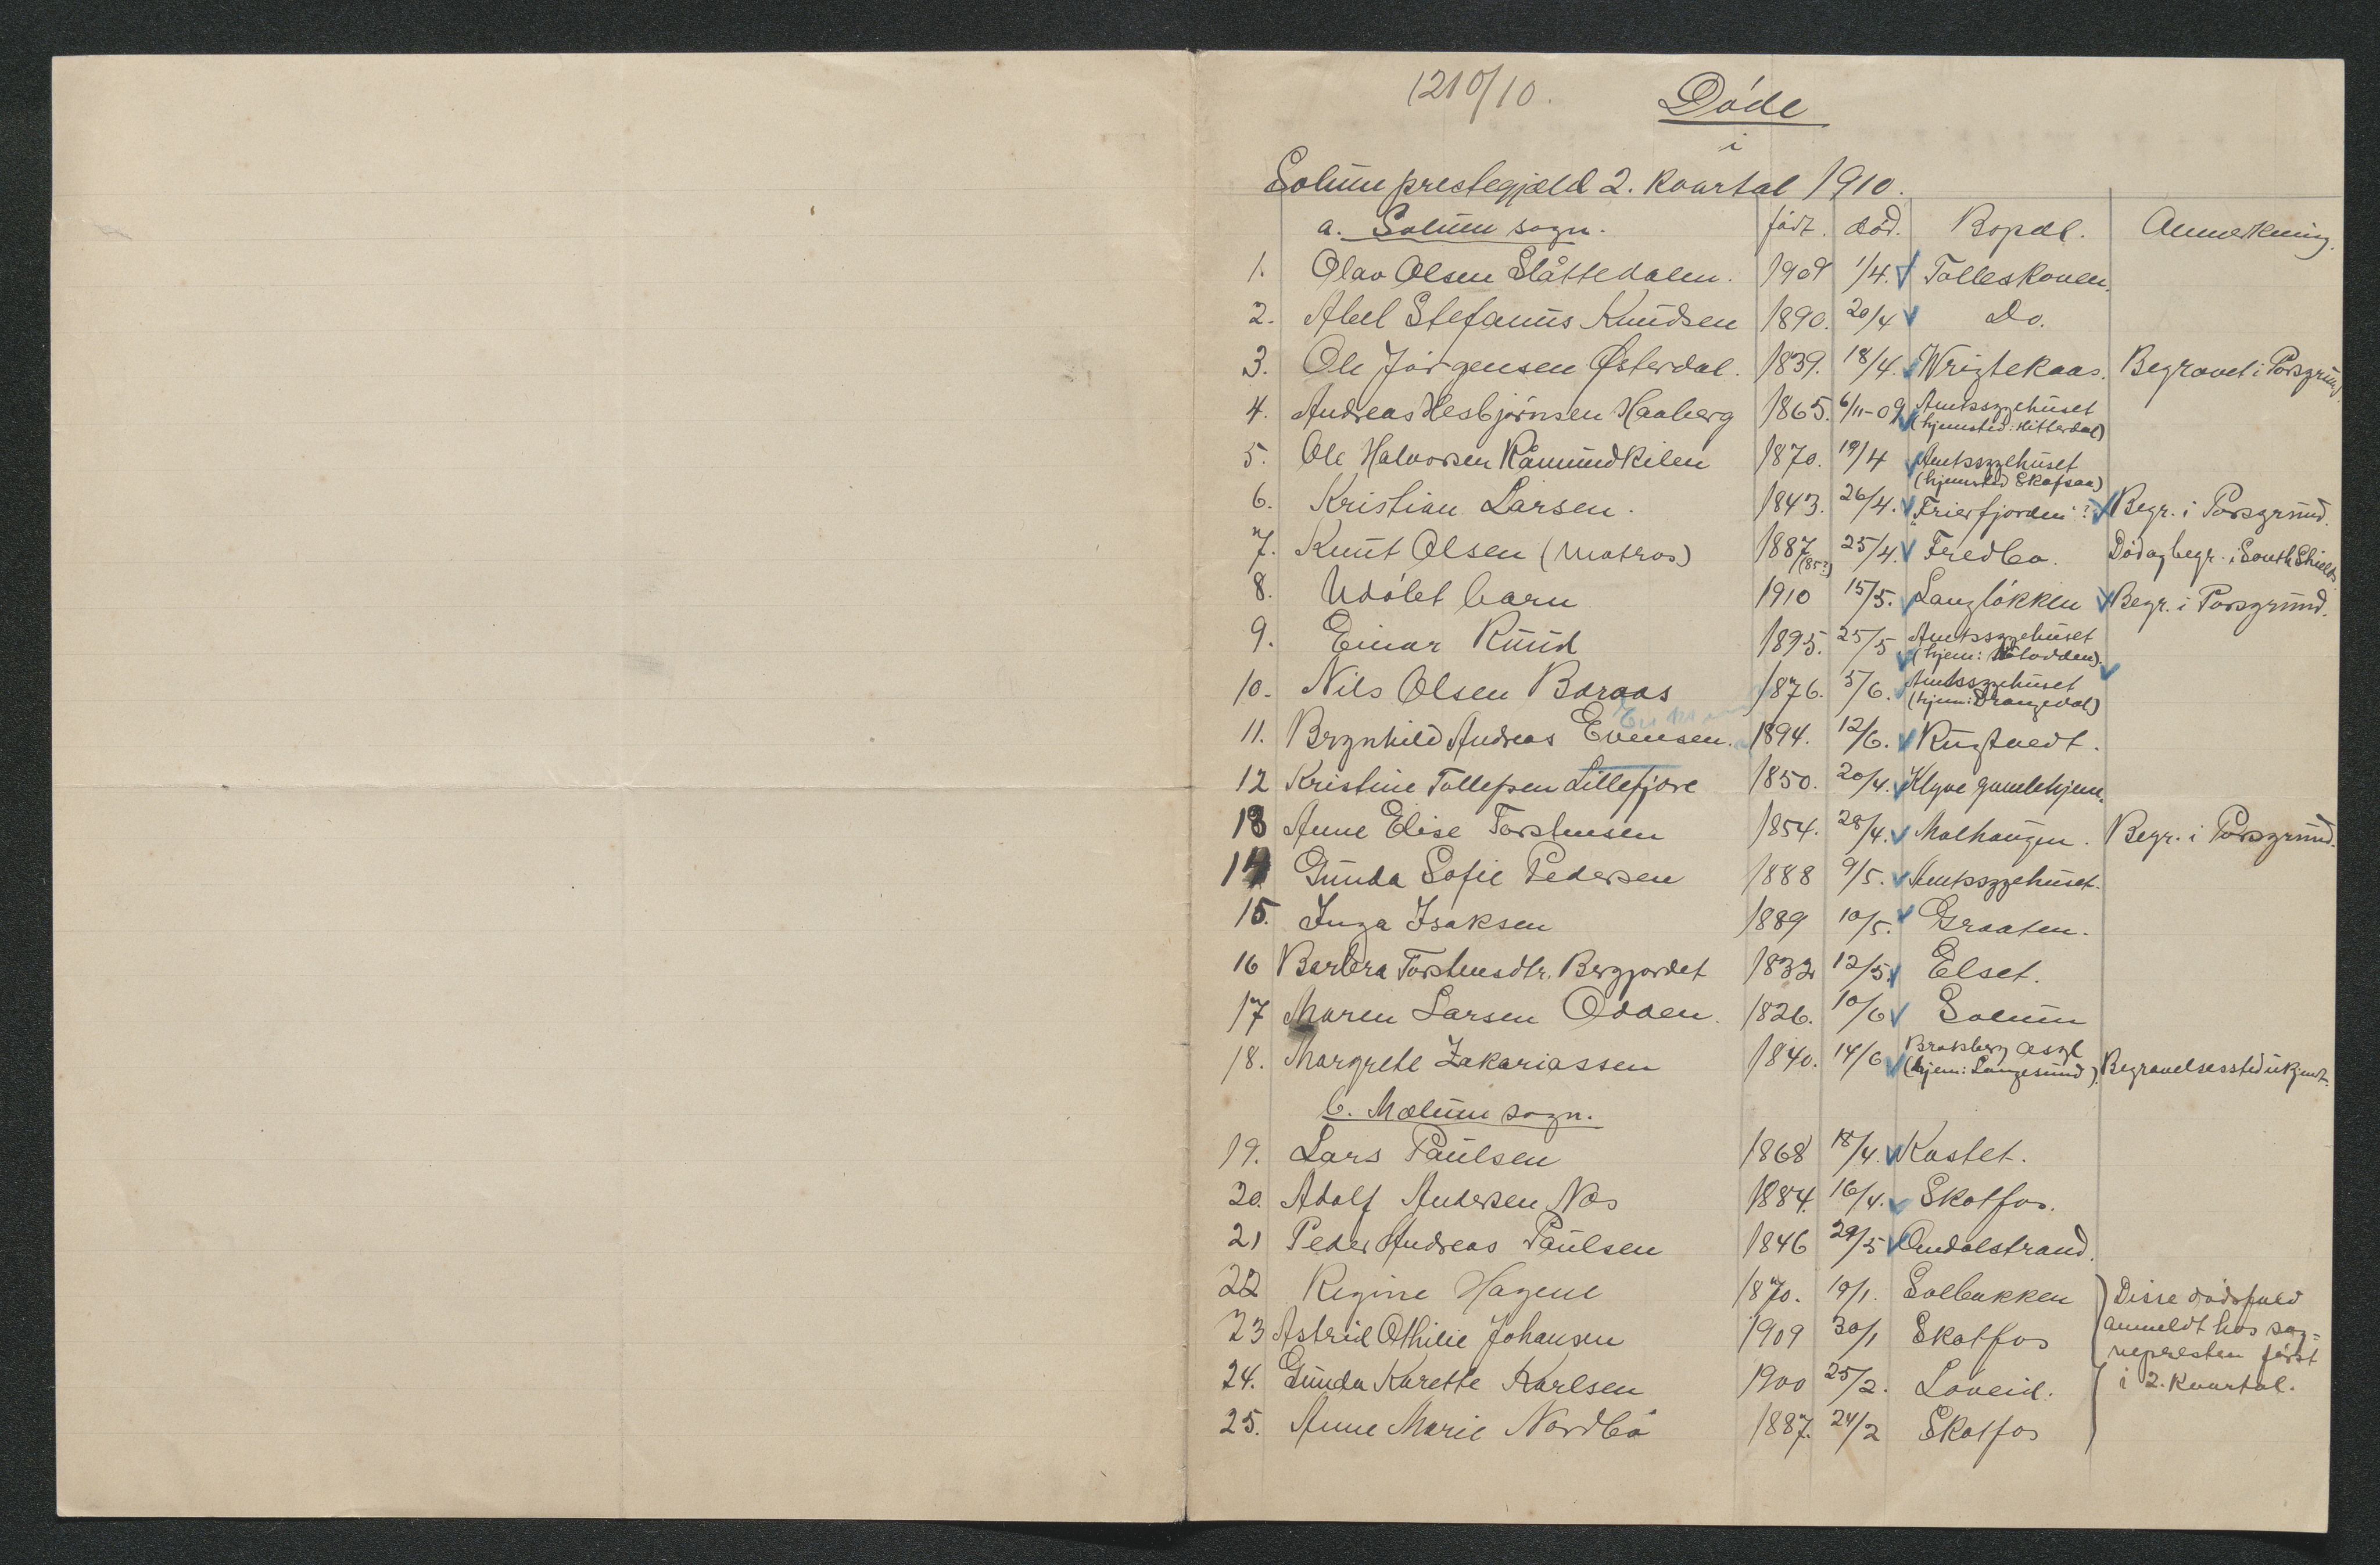 1210/10.
Døde
i
Solum prestegjæld 2. kvartal 1910.
a. Solum sogn. født. død. Bopæl. Anmerkning.
1. Olav Olsen Slåttedalen. 1909 1/4. Tolleskoven.
2. Abel Stefanus Knudsen 1890. 20/4 Do.
3. Ole Jørgensen Østerdal. 1839. 18/4. Wrigtekaas. Begravet i Porsgrund
4. Andreas Hesbjørnsen Haaberg 1865. 6/11-09 Amtssygehuset
(hjemsted: Hitterdal)
5. Ole Halvorsen Råmundkilen 1870. 19/4 Amtssygehuset
(hjemsted Skafsaa)
6. Kristian Larsen. 1843. 26/4. "Frierfjorden"? Begr. i Porsgrund.
7. Knut Olsen (matros) 1887 (85?) 25/4. Fredbo. Død og begr. i South Shields
8. Udøbt barn 1910 15/5. Langløkken Begr. i Porsgrund.
9. Einar Ruud 1895. 25/5 Amtssygehuset
(hjem: Notodden).
10. Nils Olsen Boraas 1876. 5/6. Amtssygehuset
(hjem: Drangedal)
11. Brynhild Andreas Evensen. 1894. 12/6. Rugtvedt.
12 Kristine Tollefsen Lillefjøre 1850. 20/4. Klyve gamlehjem.
13 Anne Elise Torstensen 1854. 28/4. Malhaugen. Begr. i Porsgrund.
14 Gunda Sofie Pedersen 1888 9/5. Amtssygehuset.
15. Inga Isaksen 1889 10/5. Graaten.
16 Barbra Torstensdtr. Bergjordet 1832 12/5. Elset.
17 Maren Larsen Odden. 1826. 10/6 Solum
18. Margrete Zakariassen 1840. 14/6 Bratsberg asyl
(hjem: Langesund). Begravelsessted ukjent.
b. Melum sogn.
19. Lars Paulsen 1868 18/4. Kastet.
20. Adolf Andersen Næs 1884. 16/4. Skotfos.
21 Peder Andreas Paulsen 1846 29/5 Omdalstrand.
22 Regine Hagene 1870. 19/1. Solbakken Disse dødsfald
23 Astrid Othilie Johansen 1909 30/1 Skotfos anmeldt hos sog-
nepresten først
24. Gunda Karette Karlsen 1900 25/2. Løveid. i 2. kvartal.
25. Anne Marie Nordbø 1887. 24/2 Skotfos